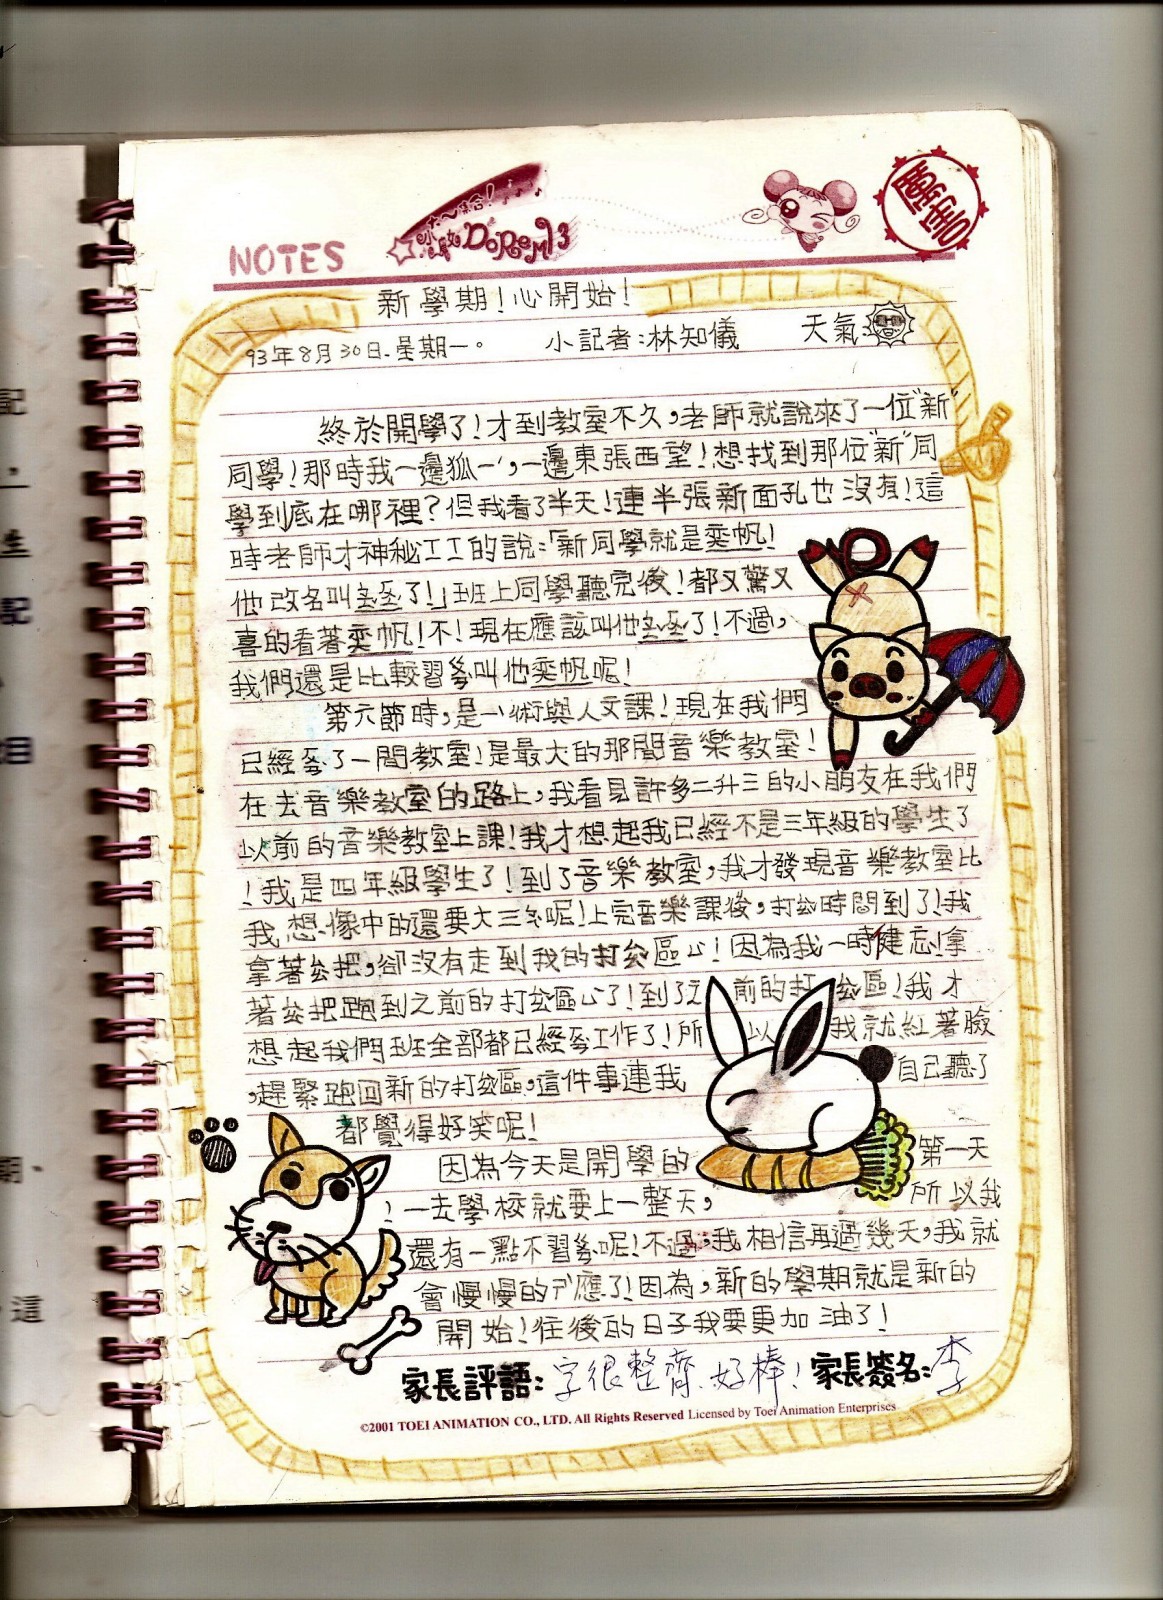 NOTES
DoReMi 3
新學期!心開始!
93年8月30日.星期一。 小記者:林知儀 天氣:
終於開學了!才到教室不久,老師就說來了一位"新"
同學!那時我一邊狐一,一邊東張西望!想找到那位"新"同
學到底在哪裡?但我看了半天!連半張新面孔也沒有!這
時老師才神秘ㄒㄒ的說:「新同學就是奕帆!
他改名叫垚垚了!」班上同學聽完後!都又驚又
喜的看著奕帆!不!現在應該叫他垚垚了!不過,
我們還是比較習ㄍ叫他奕帆呢!
第六節時,是ㄧˋ術與人文課!現在我們
已經ㄏ了一間教室!是最大的那間音樂教室!
在去音樂教室的路上,我看見許多二升三的小朋友在我們
以前的音樂教室上課!我才想起我已經不是三年級的學生了
!我是四年級學生了!到了音樂教室,我才發現音樂教室比
我想像中的還要大三ㄅ呢!上完音樂課後,打ㄙ時間到了!我
拿著ㄙ把,卻沒有走到我的打ㄙ區ㄙ!因為我一時健忘!拿
著ㄙ把跑到之前的打ㄙ區ㄙ了!到了之前的打ㄙ區!我才
想起我們班全部都已經ㄏ工作了!所以我就紅著臉
,趕緊跑回新的打ㄙ區,這件事連我自己聽了
都覺得好笑呢!
因為今天是開學的第一天
!一去學校就要上一整天,所以我
還有一點不習ㄍ呢!不過,我相信再過幾天,我就
會慢慢的ㄕˋ應了!因為,新的學期就是新的
開始!往後的日子我要更加油了!
家長評語:字很整齊.好棒! 家長簽名:李
©2001 TOEI ANIMATION CO., LTD. All Rights Reserved Licensed by Toei Animation Enterprises